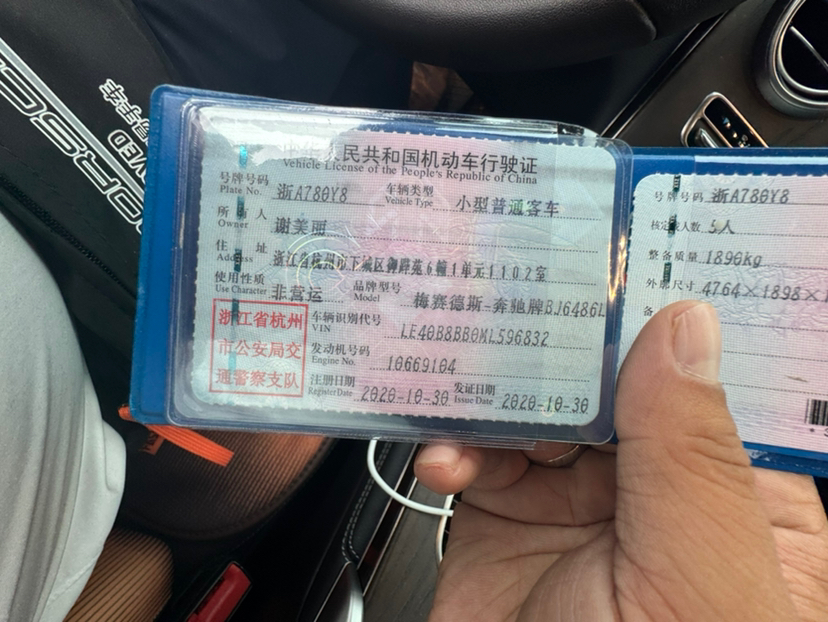 中华人民共和国机动车行驶证
Vehicle License of the People's Republic of China
号牌号码 浙A780Y8 车辆类型 小型普通客车
Plate No. Vehicle Type
所有人 谢美丽
Owner
住址 浙江省杭州市下城区御跸苑6幢1单元1102室
Address
使用性质 非营运 品牌型号 梅赛德斯-奔驰牌BJ6486L
Use Character Model
浙江省杭州
市公安局交
通警察支队
车辆识别代号 LE40B8BB0ML596832
VIN
发动机号码 10669104
Engine No.
注册日期 2020-10-30 发证日期 2020-10-30
Register Date Issue Date
号牌号码 浙A780Y8
核定载人数 5人
整备质量 1890kg
外廓尺寸 4764×1898×1
备